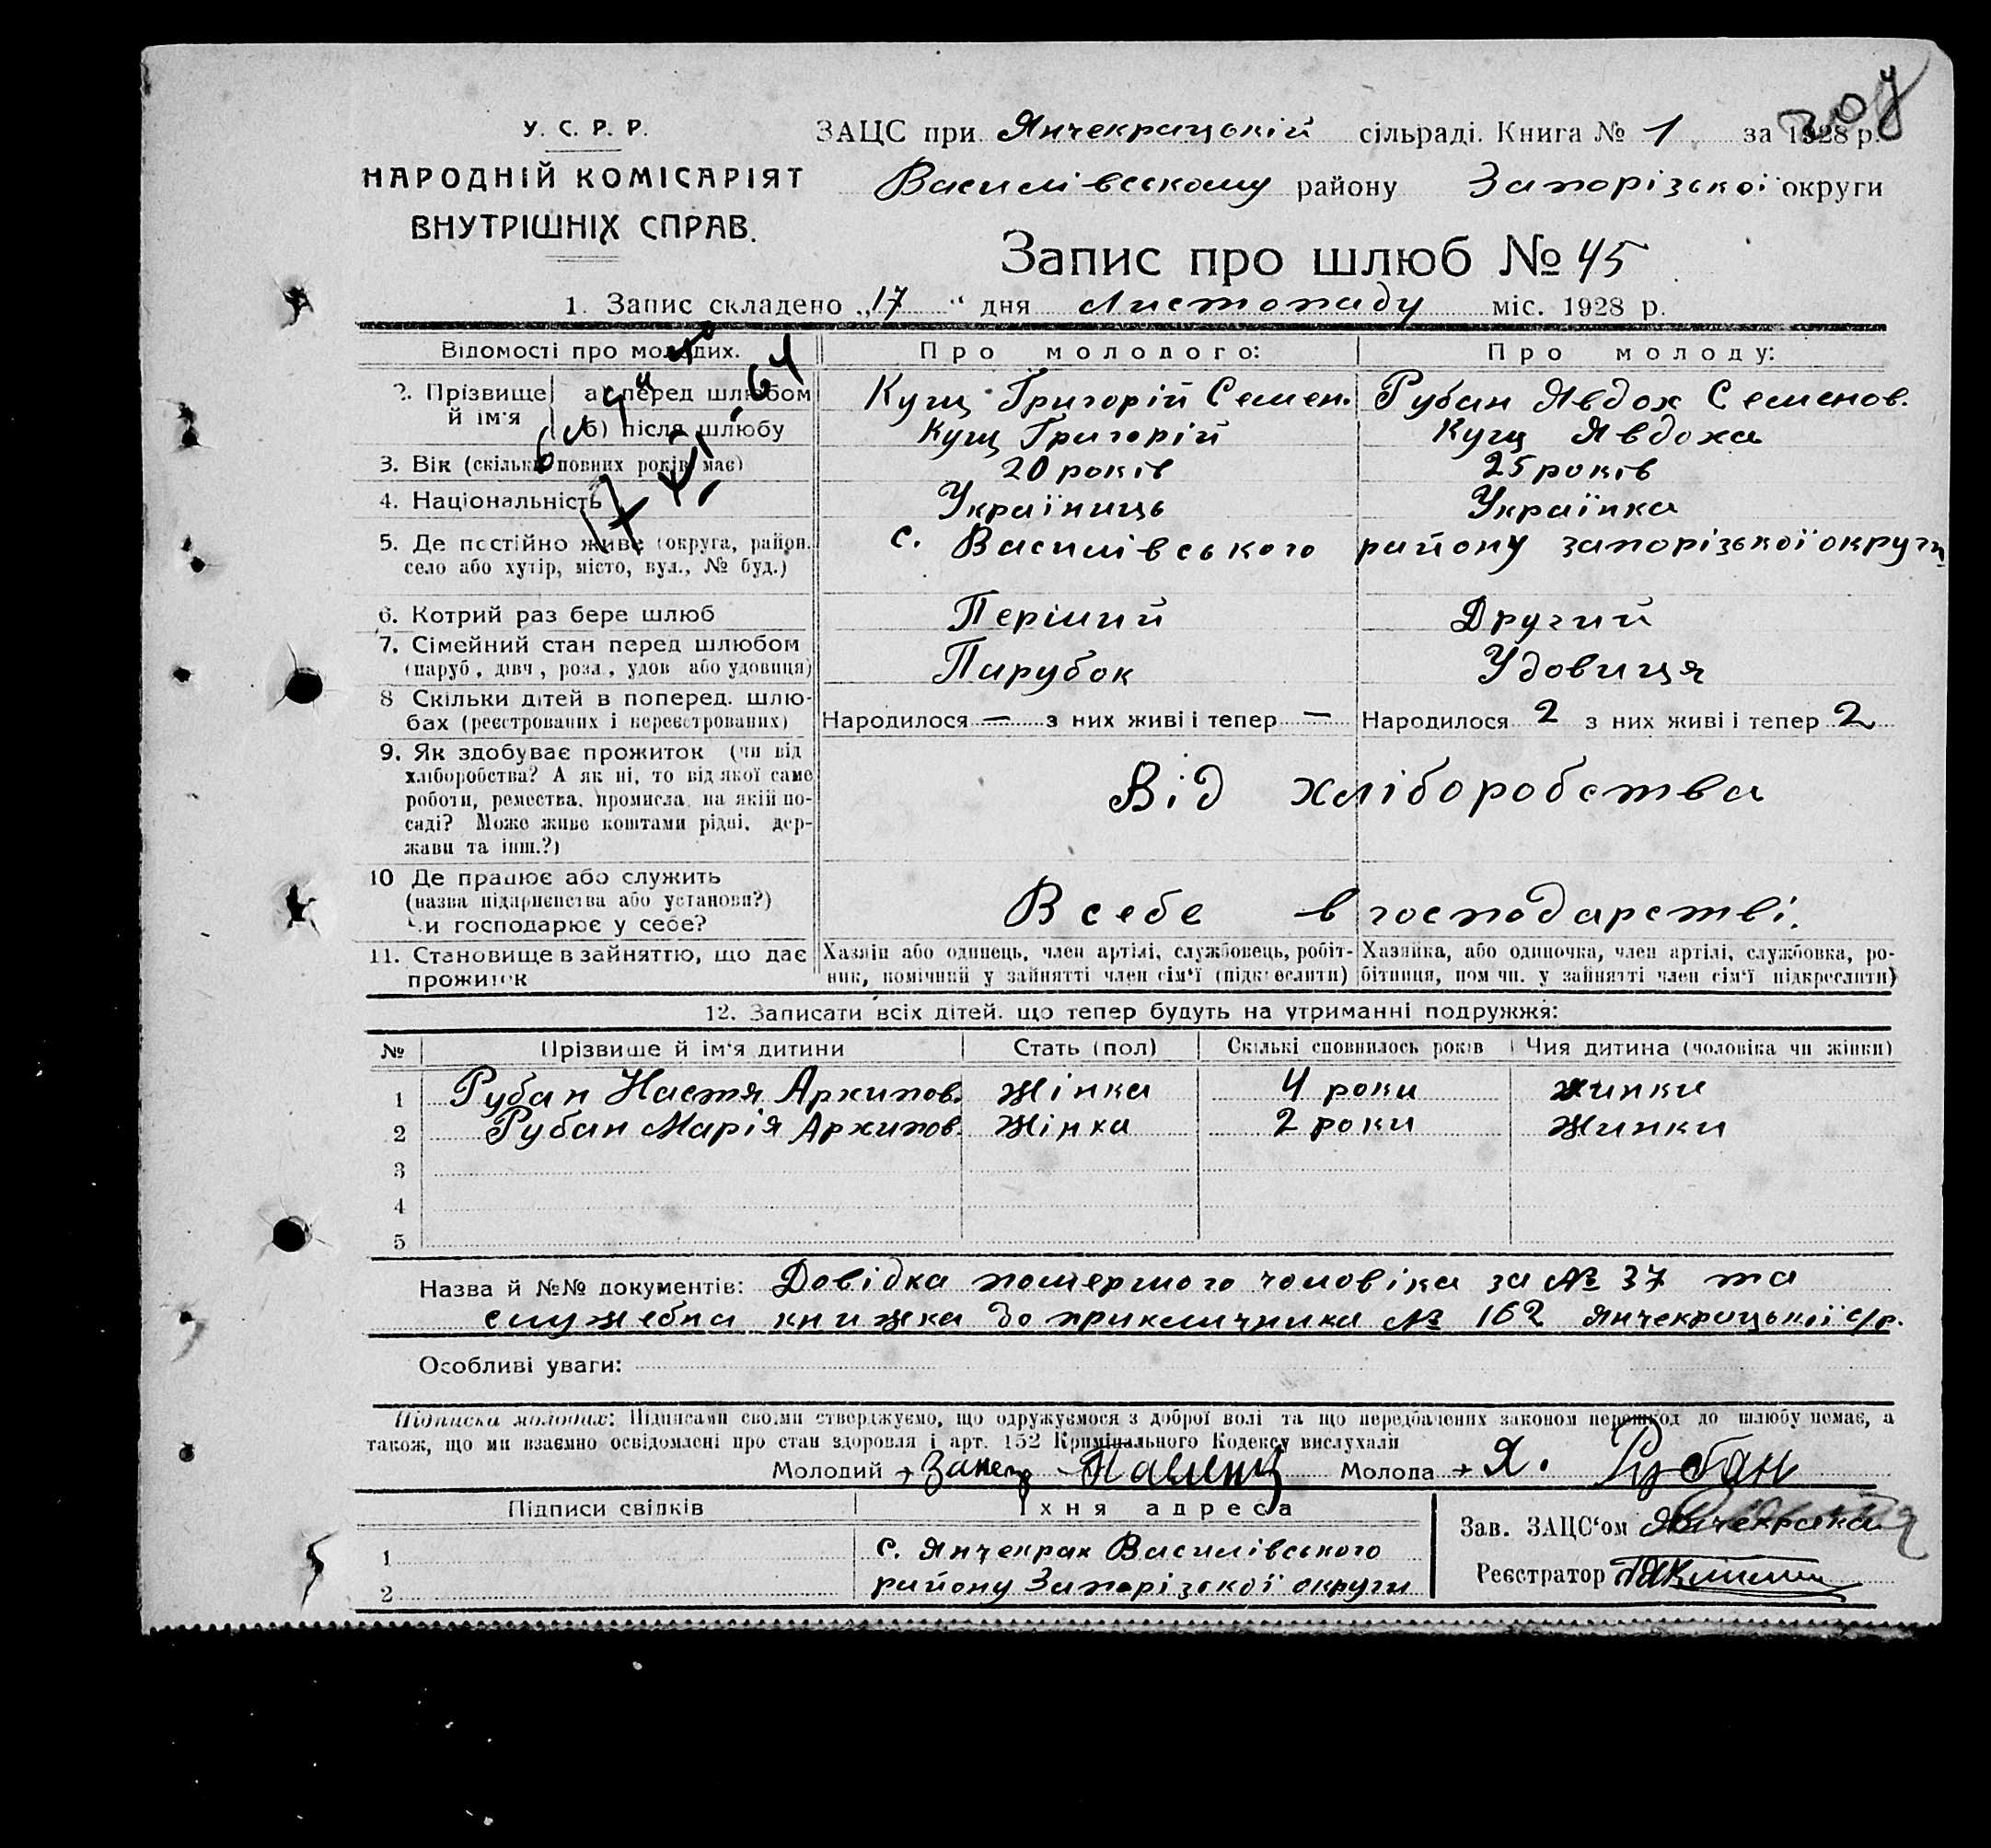 У. С. Р. Р.
НАРОДНІЙ КОМІСАРІЯТ
ВНУТРІШНІХ СПРАВ.
ЗАЦС при Янчекрацькій сільраді. Книга № 1 за 1928 р.
Василівському району Запорізької округи
Запис про шлюб № 45
1. Запис складено „17“ дня Листопаду міс. 1928 р.
Відомості про молодих. Про молодого: Про молоду:
2. Прізвище й ім'я а) перед шлюбом Кущ Григорій Семен. Рубан Явдох Семенов.
б) після шлюбу Кущ Григорій Кущ Явдоха
3. Вік (скільки повних років має) 20 років 25 років
4. Національність Україниць Українка
5. Де постійно живе (округа, район, с. Василівського району запорізької округи
село або хутір, місто, вул., № буд.)
6. Котрий раз бере шлюб Перший Другий
7. Сімейний стан перед шлюбом
(паруб., дівч., розл., удов. або удовиця) Парубок Удовиця
8 Скільки дітей в поперед. шлю-
бах (реєстрованих і нереєстрованих) Народилося — з них живі і тепер — Народилося 2 з них живі і тепер 2
9. Як здобуває прожиток (чи від
хліборобства? А як ні, то від якої саме
роботи, ремества, промисла, на якій по-
саді? Може живе коштами рідні, дер-
жави та інш.?)
Від хліборобства
10 Де працює або служить
(назва підприємства або установи?)
Чи господарює у себе?
В себе в господарстві.
11. Становище в зайняттю, що дає
прожиток
Хазяїн або одинець, член артілі, службовець, робіт-
ник, помічний у зайнятті член сім'ї (підкреслити)
Хазяйка, або одиночка, член артілі, службовка, ро-
бітниця, помічн. у зайнятті член сім'ї підкреслити)
12. Записати всіх дітей, що тепер будуть на утриманні подружжя:
№ Прізвище й ім'я дитини Стать (пол) Скількі сповнилось років Чия дитина (чоловіка чи жінки)
1 Рубан Настя Архипов. Жінка 4 роки жинки
2 Рубан Марія Архипов. Жінка 2 роки Жинки
3
4
5
Назва й №№ документів: Довідка помершого чоловіка за № 37 та
служебна книжка до прикличника № 162 Янчекрацької с/р.
Особливі уваги:
Підписка молодих: Підписами своїми стверджуємо, що одружуємося з доброї волі та що передбачених законом перешкод до шлюбу немає, а
також, що ми взаємно освідомлені про стан здоровля і арт. 152 Кримінального Кодексу вислухали
Молодий Молода Я. Рубан
Підписи свідків Їхня адреса
1 с. Янчекрак Василівського
2 району Запорізської округи
Зав. ЗАЦС'ом
Реєстратор